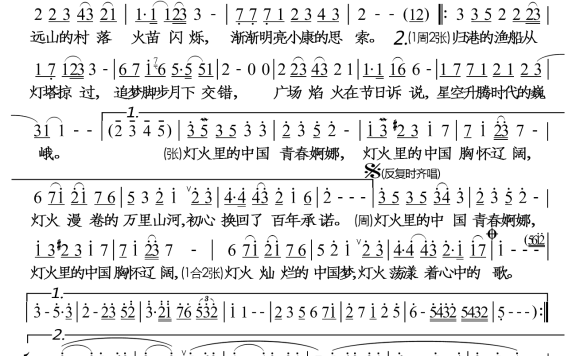 2 2 3 43 21 | 1· 1 123 3 - | 7 7 7 1 2 3 4 3 | 2 - - (12) ‖: 3 3 5 2 2 23 |
远山的村 落 火苗 闪 烁， 渐渐明亮小康的思 索。 2.(1周2张)归港的渔船从
1 7 123 3 - | 6 7 1 76 5·5 51 | 2 - 0 0 | 2 23 43 2 1 | 1·1 16 6 - | 1 7 7 1 2 1 2 3
灯塔掠 过， 追梦脚步月下 交 错， 广场 焰 火在节日诉 说，星空升腾时代的巍
1.
31 1 - - | (2 3 4 5) | 3 5 3 5 3 3 | 2 3 5 2 - | 1 3 #2 3 1 7 | 7 1 23 7 - |
峨。 (张)灯火里的中国 青春婀娜， 灯火里的中国 胸怀辽 阔，
(反复时齐唱)
6 71 21 76 | 5 3 2 1 ∨2 3 | 4·4 43 2 1 6 | 2 - - - | 3 5 3 5 34 3 | 2 3 5 2 - |
灯火 漫 卷的 万里山河，初心 换回了 百年承诺。 (周)灯火里的中 国 青春婀娜，
1 3 #2 3 1 7 | 7 1 23 7 - | 6 71 21 7 6 | 5 2 1 ∨2 3 | 4·4 43 2·1 17 | 1 - - - (562)
灯火里的中国胸怀辽 阔，(1合2张)灯火 灿 烂的 中国梦，灯火 荡漾 着心中的 歌。
1.
3 - 5·3 | 2 - 23 52 | 3·21 76 532 | 1 1 - - | 2 3 5 6 7 1 | 2 7 1 2 5 | 6 - 5432 5432 | 5 - - - ) :‖
2.